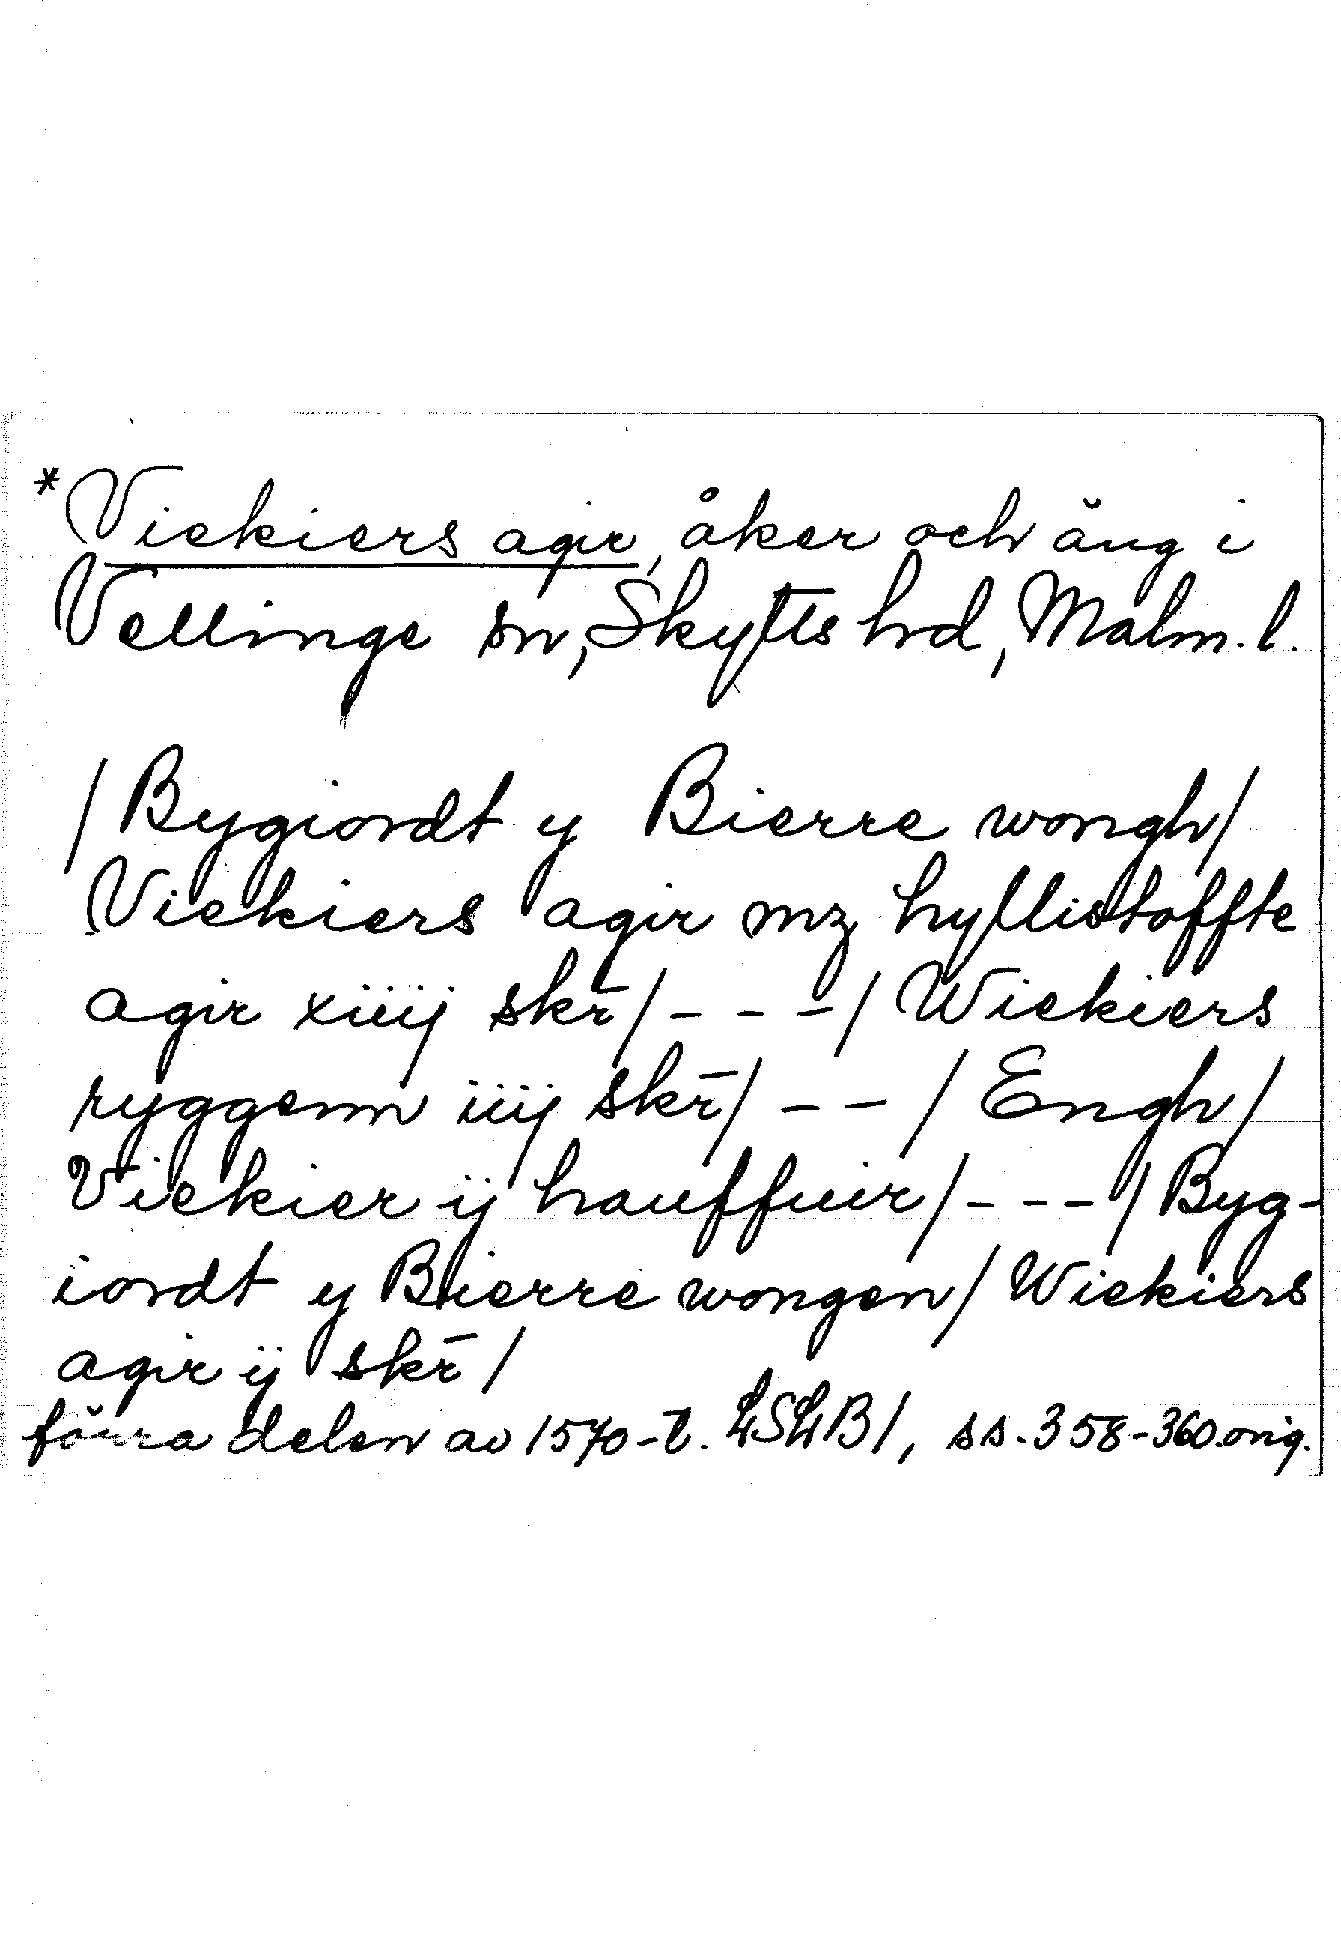 *Viekiers agir, åker och äng i
Vellinge sn, Skytts hrd, Malm. l.
/Bygiordt y Bierre wongh/
Viekiers agir mz hyllistoffte
agir xiiij skr̄/ - - - / Wiekiers
ryggenn iiij skr̄/ - - / Engh/
Viekier ij hauffuir/ - - - / Byg-
iordt y Bierre wongen/ Wiekiers
agir ij skr̄/
förra delen av 1570-t. LSLB1, ss. 358-360. orig.